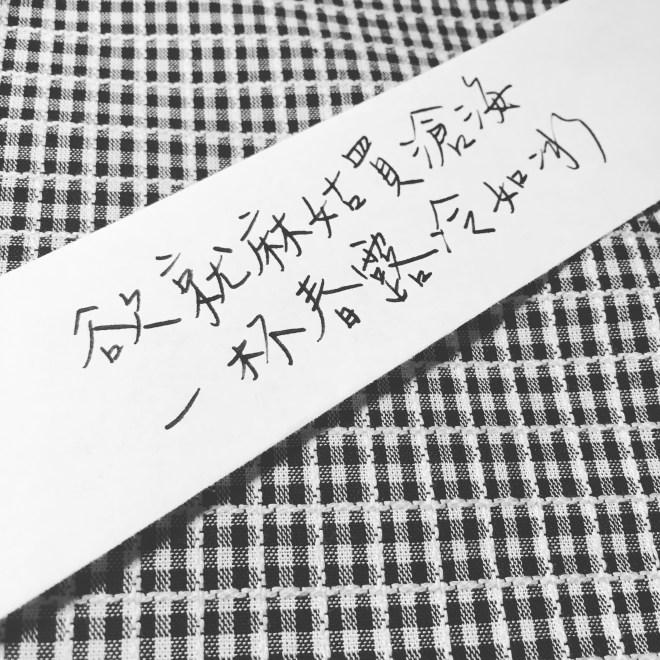 欲就麻姑買滄海
一杯春露冷如冰